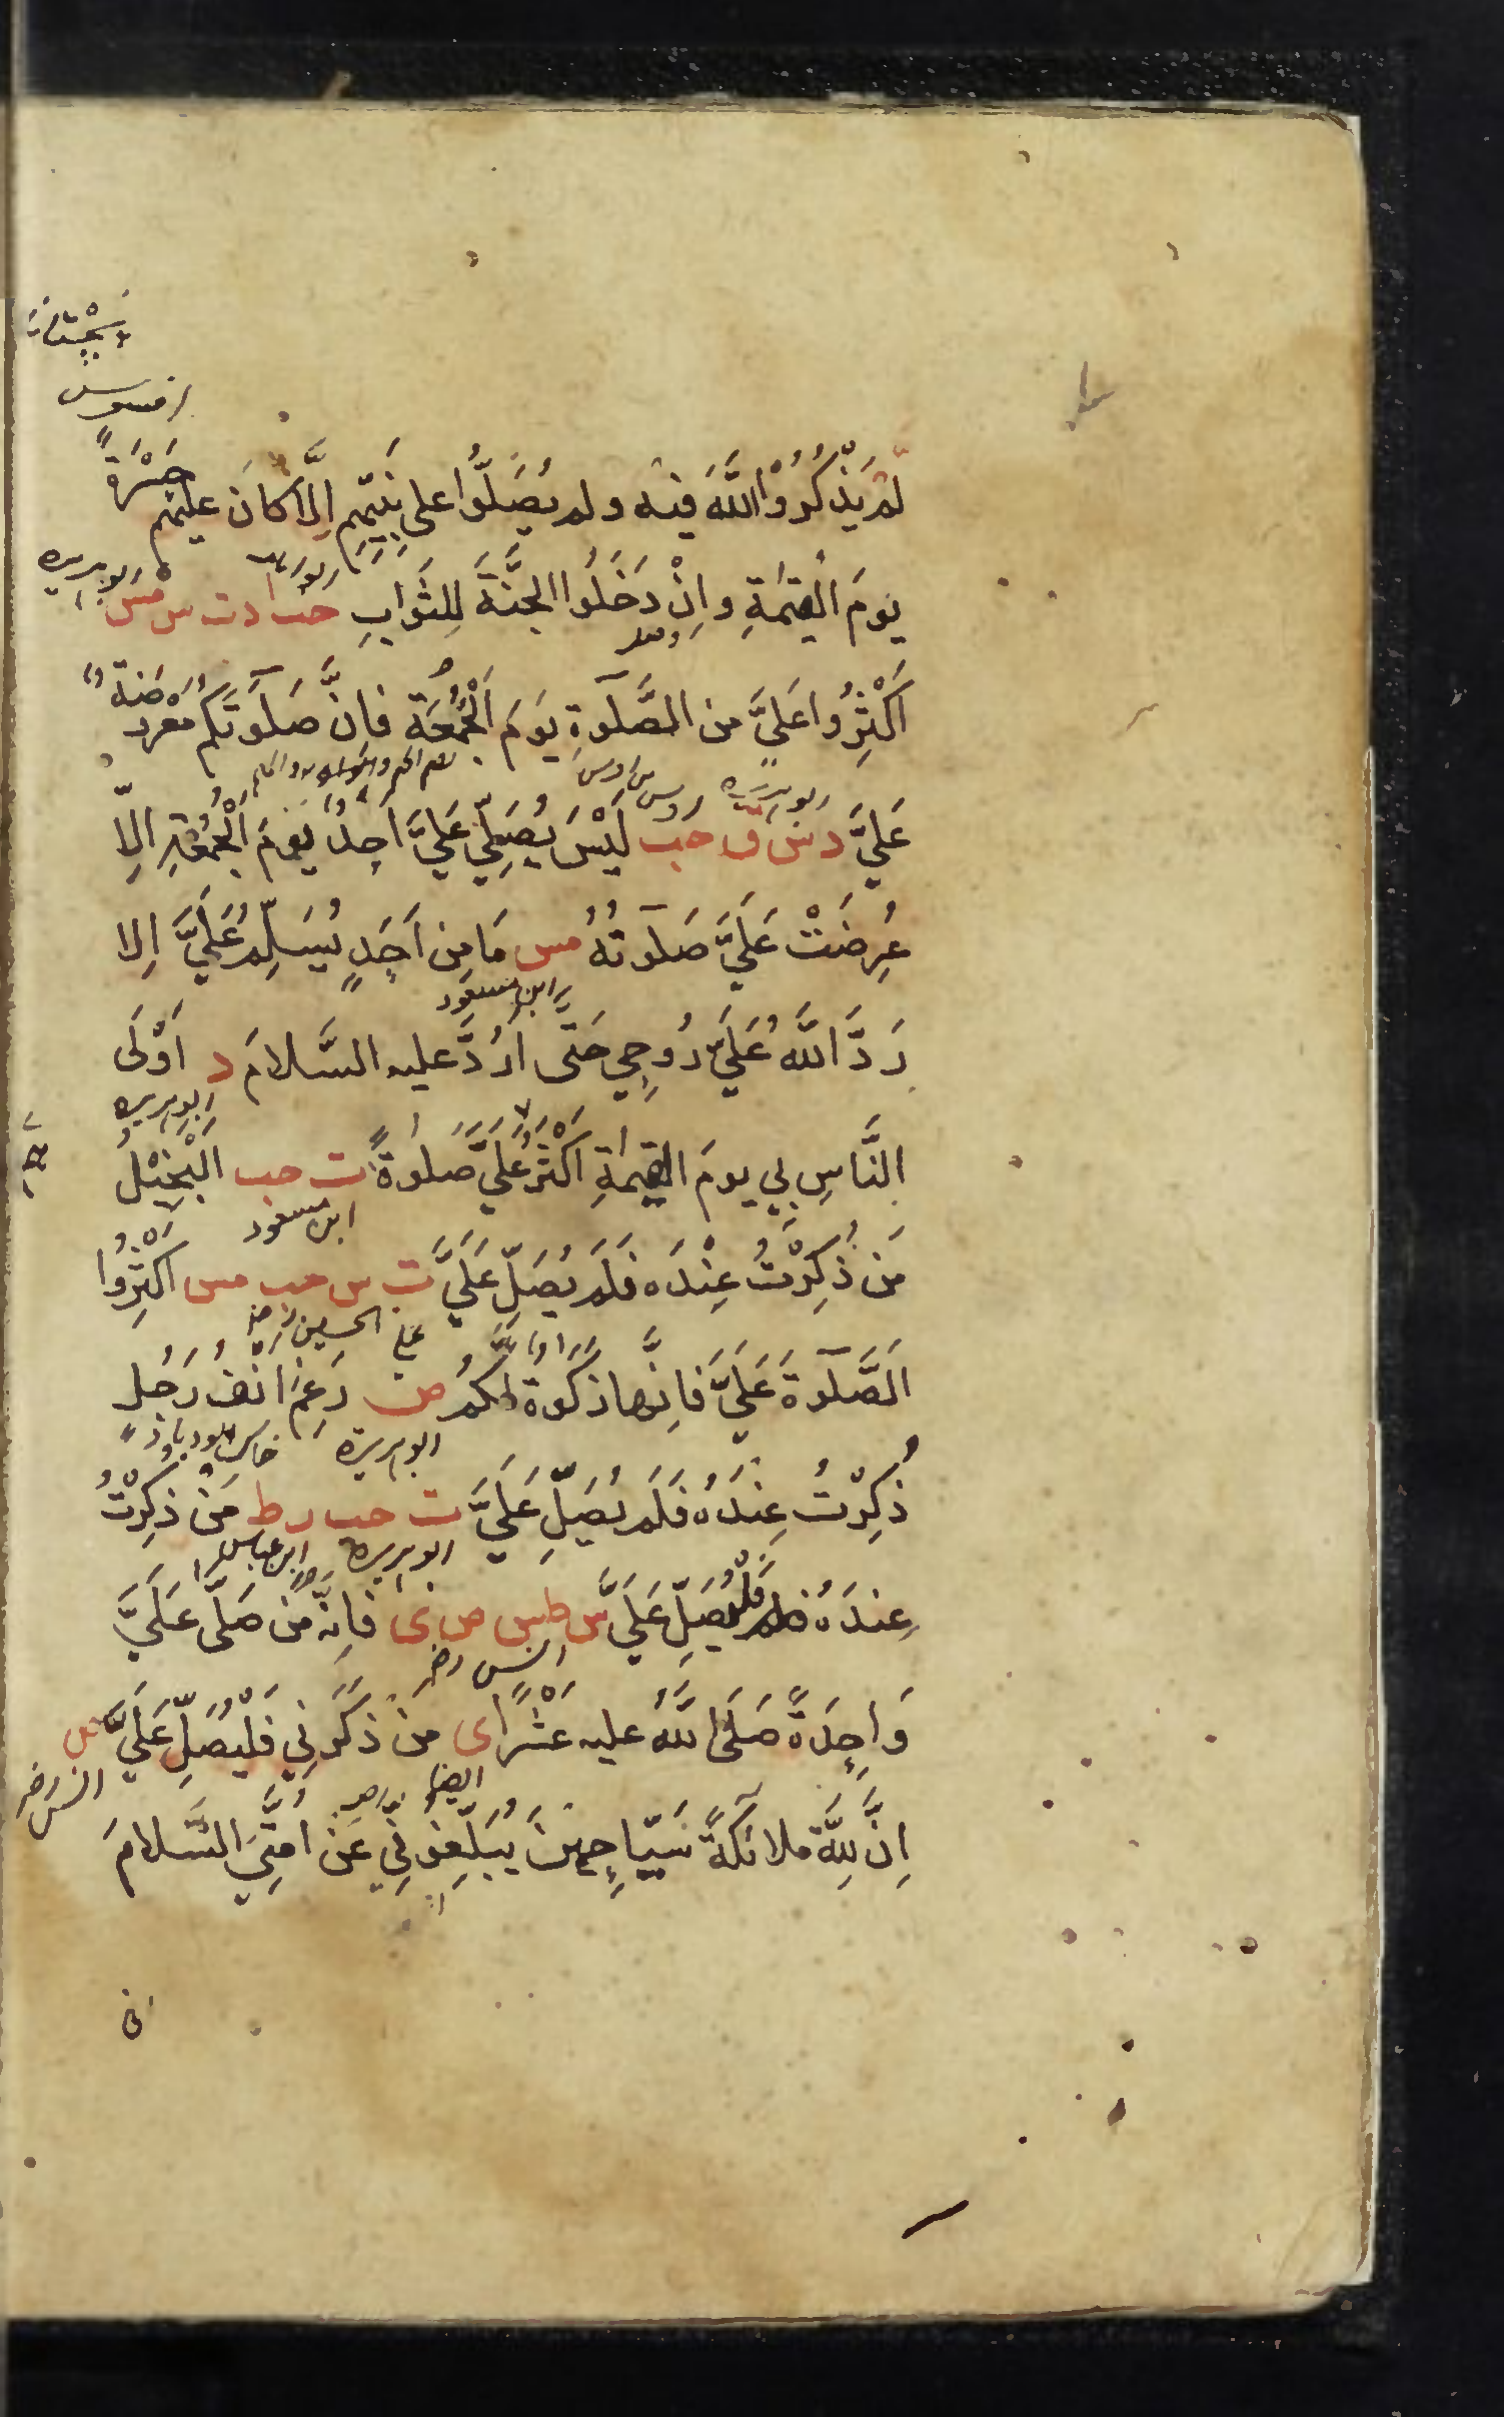 لَمْ يَذْكُرُوا اللَّهَ فيه ولم يُصَلُّوا على نَبِيِّهِم اِلَّا كَانَ عليهم حَسْرَةً
يومَ الْقِيٰمَةِ واِنْ دَخَلُوا الجَنَّةَ لِلثَّوَابِ حب ا د ت س مس
ابو هريره
اَكْثِرُوا عَلَيَّ من الصَّلٰوةِ يَوْمَ الْجُمُعَةِ فانَّ صَلٰوتَكُم مَعْرُوضَةٌ
عَلَيَّ د س ق حب لَيْسَ يُصَلِّي عَلَيَّ اَحَدٌ يَومَ الْجُمُعَةِ اِلّا
عُرِضَتْ عَلَيَّ صَلٰوتُهُ مس مَا مِن اَحَدٍ يُسَلِّمُ عَلَيَّ اِلا
رَدَّ اللَّهُ عَلَيَّ رُوحِي حَتّى اَرُدَّ عليه السَّلامَ د اَوْلَى
ابو هريره
ابن مسعود
النَّاسِ بِي يومَ القِيٰمَةِ اَكْثَرُهُم عَلَيَّ صَلٰوةً ت حب الْبَخِيْلُ
ابن مسعود
مَن ذُكِرْتُ عِنْدَه فَلَم يُصَلِّ عَلَيَّ ت س حب مس اَكْثِرُوا
على الحسين رضـ
الصَّلٰوةَ عَلَيَّ فَاِنَّها زَكٰوةٌ لَّكُم ص رَغِمَ اَنْفُ رَجُلٍ
ابو هريرة
ذُكِرْتُ عِنْدَهُ فَلَم يُصَلِّ عَلَيَّ ت حب ر ط مَنْ ذُكِرْتُ
ابو هريره ابن عباس
عِندَهُ فَلْيُصَلِّ عَلَيَّ س طس ص ى فَاِنَّه مَن صَلَّى عَلَيَّ
انس رضـ
وَاحِدَةً صَلَّى اللَّهُ عليه عَشْرًا ى مَنْ ذَكَرَنِي فَلْيُصَلِّ عَلَيَّ ص
ايضا
انس رضـ
اِنَّ لِلَّهِ ملائكةً سَيَّاحِينَ يُبَلِّغُونِّي عَن اُمَّتِيَ السَّلامَ